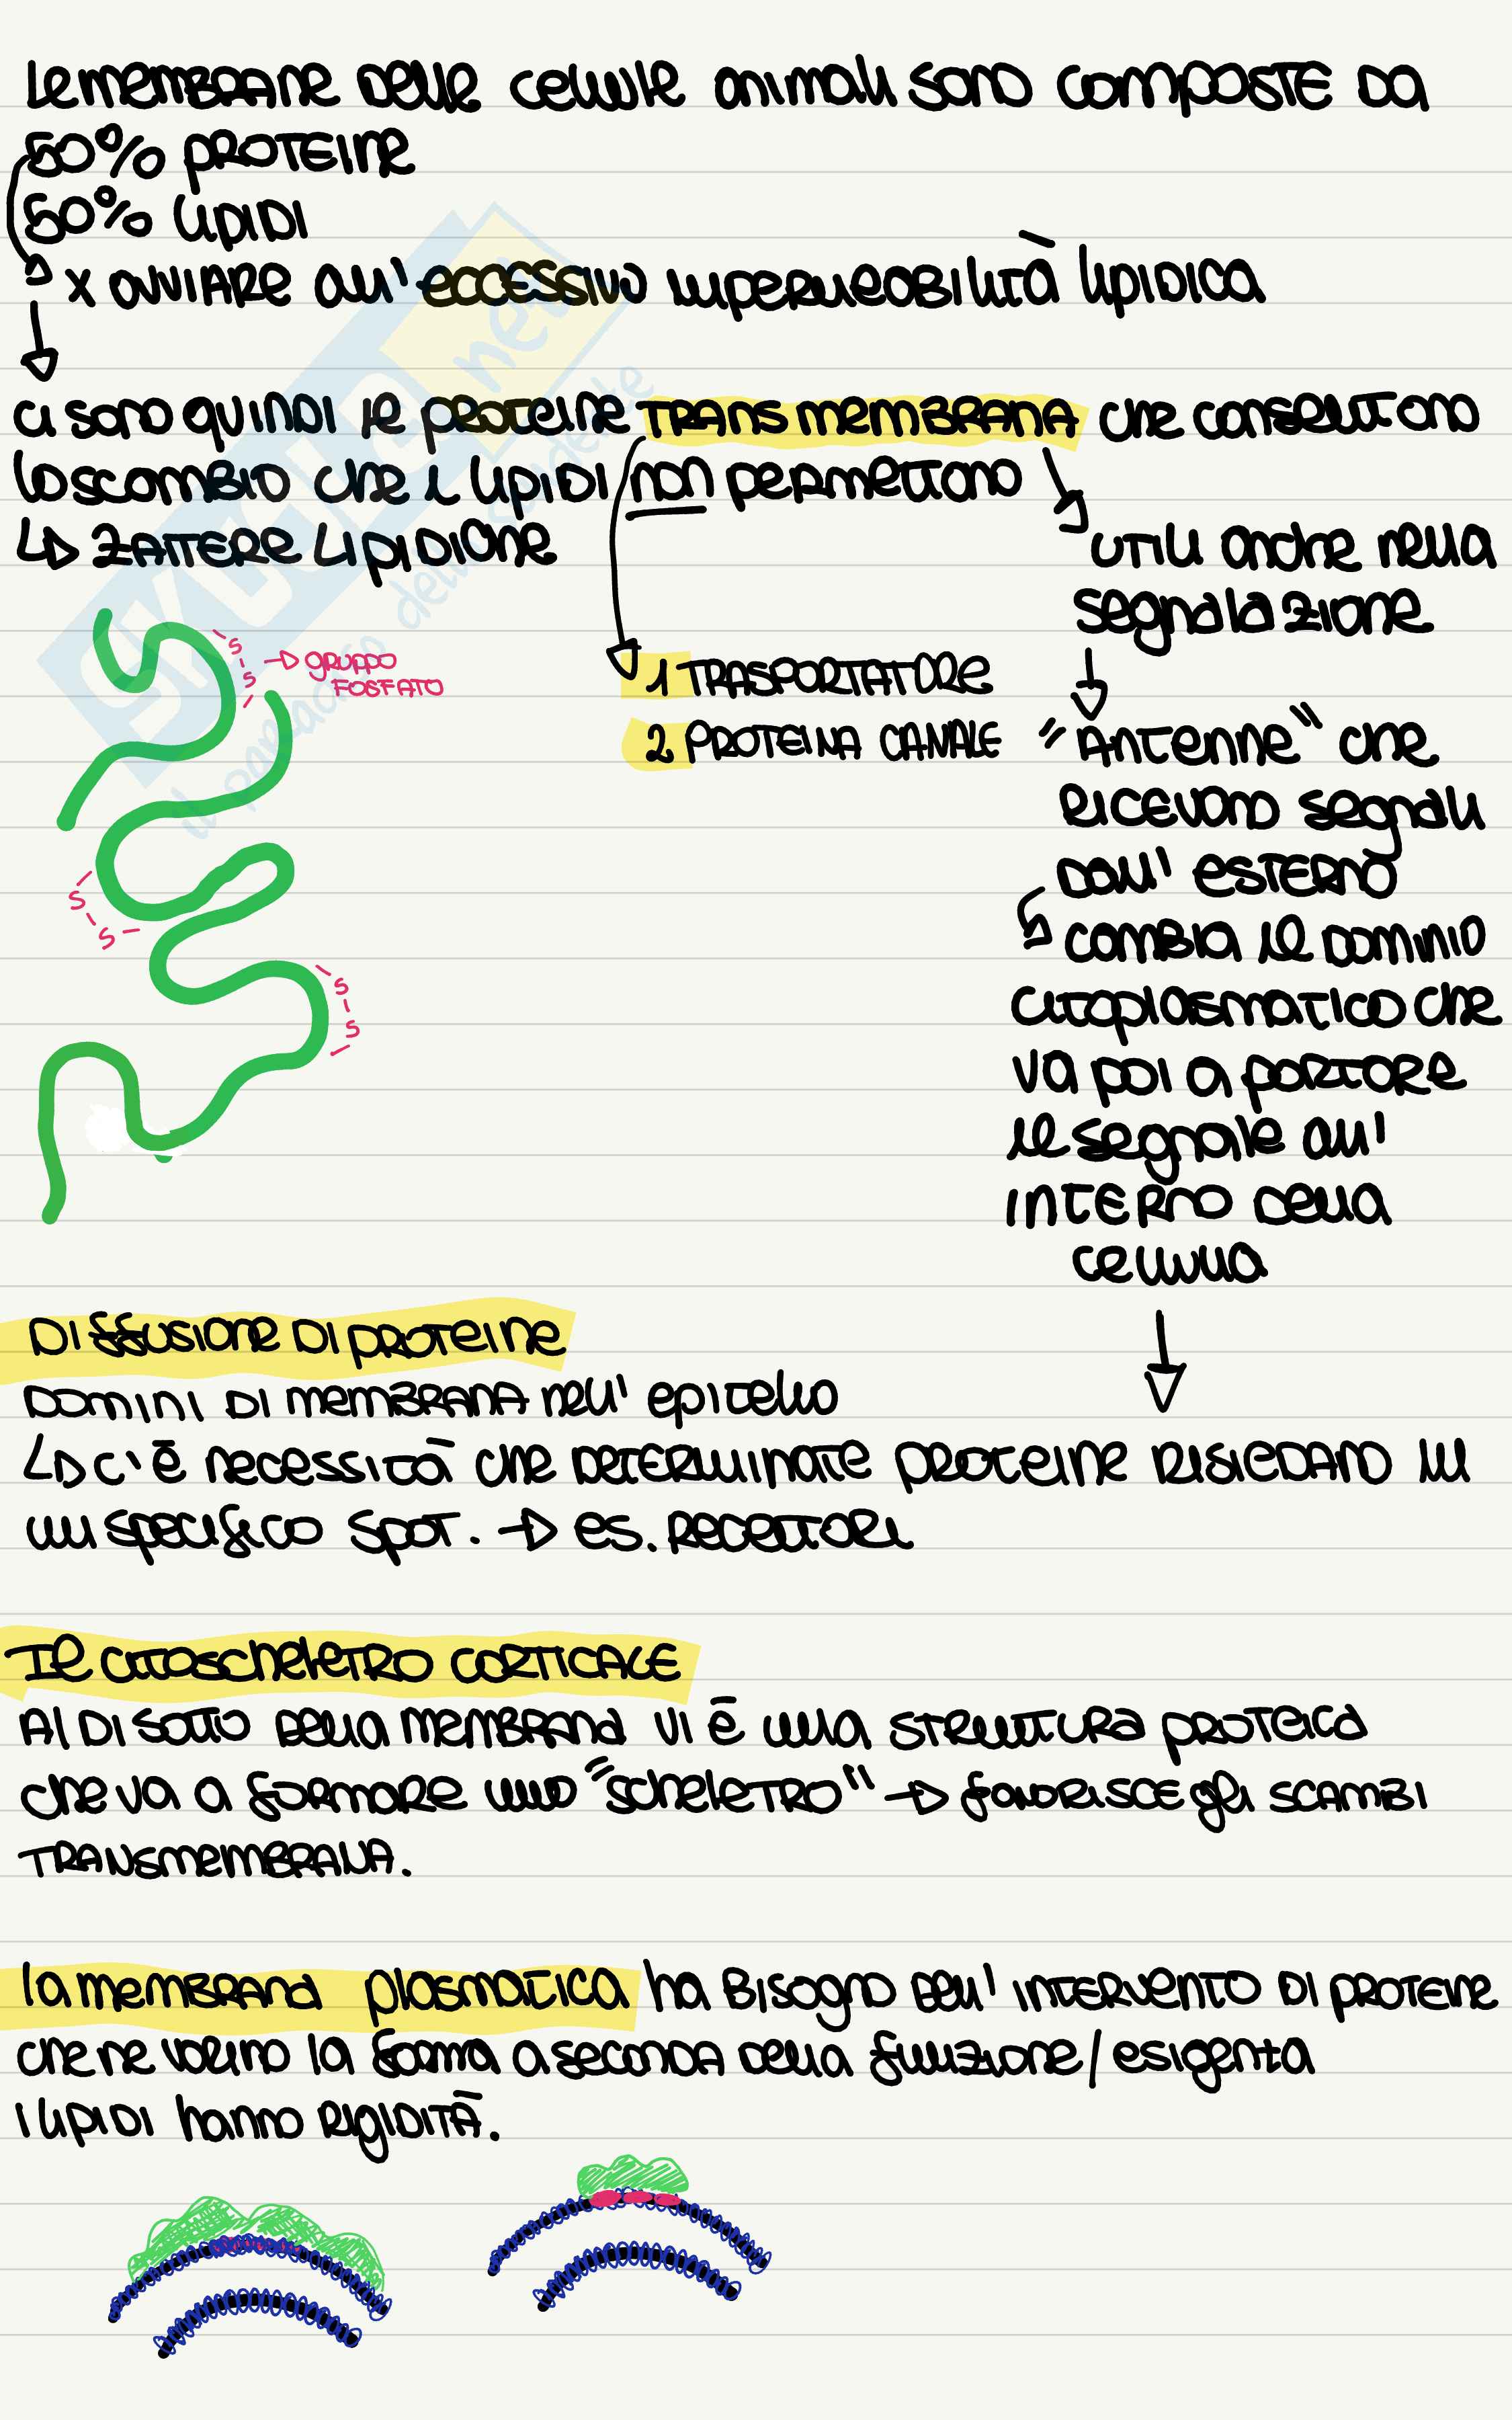 Le membrane delle cellule animali sono composte da
50% proteine
50% lipidi
x ovviare all'eccessivo impermeabilità lipidica
ci sono quindi le proteine TRANSMEMBRANA che consentono
lo scambio che i lipidi non permettono
zattere lipidiche
utili anche nella
segnalazione
S
S
gruppo
fosfato
1 TRASPORTATORE
2 PROTEINA CANALE
"Antenne" che
ricevono segnali
dall'esterno
S
S
cambia il dominio
citoplasmatico che
S
S
va poi a portare
il segnale all'
interno della
cellula
Diffusione di proteine
Domini di membrana nell'epitelio
c'è necessità che determinate proteine risiedano in
un specifico spot. es. recettori
Il citoscheletro corticale
Al di sotto della membrana vi è una struttura proteica
che va a formare uno "scheletro" favorisce gli scambi
transmembrana.
la membrana plasmatica ha bisogno dell'intervento di proteine
che ne varino la forma a seconda della funzione/esigenta
i lipidi hanno rigidità.
skuola.net
il paradiso dello studente